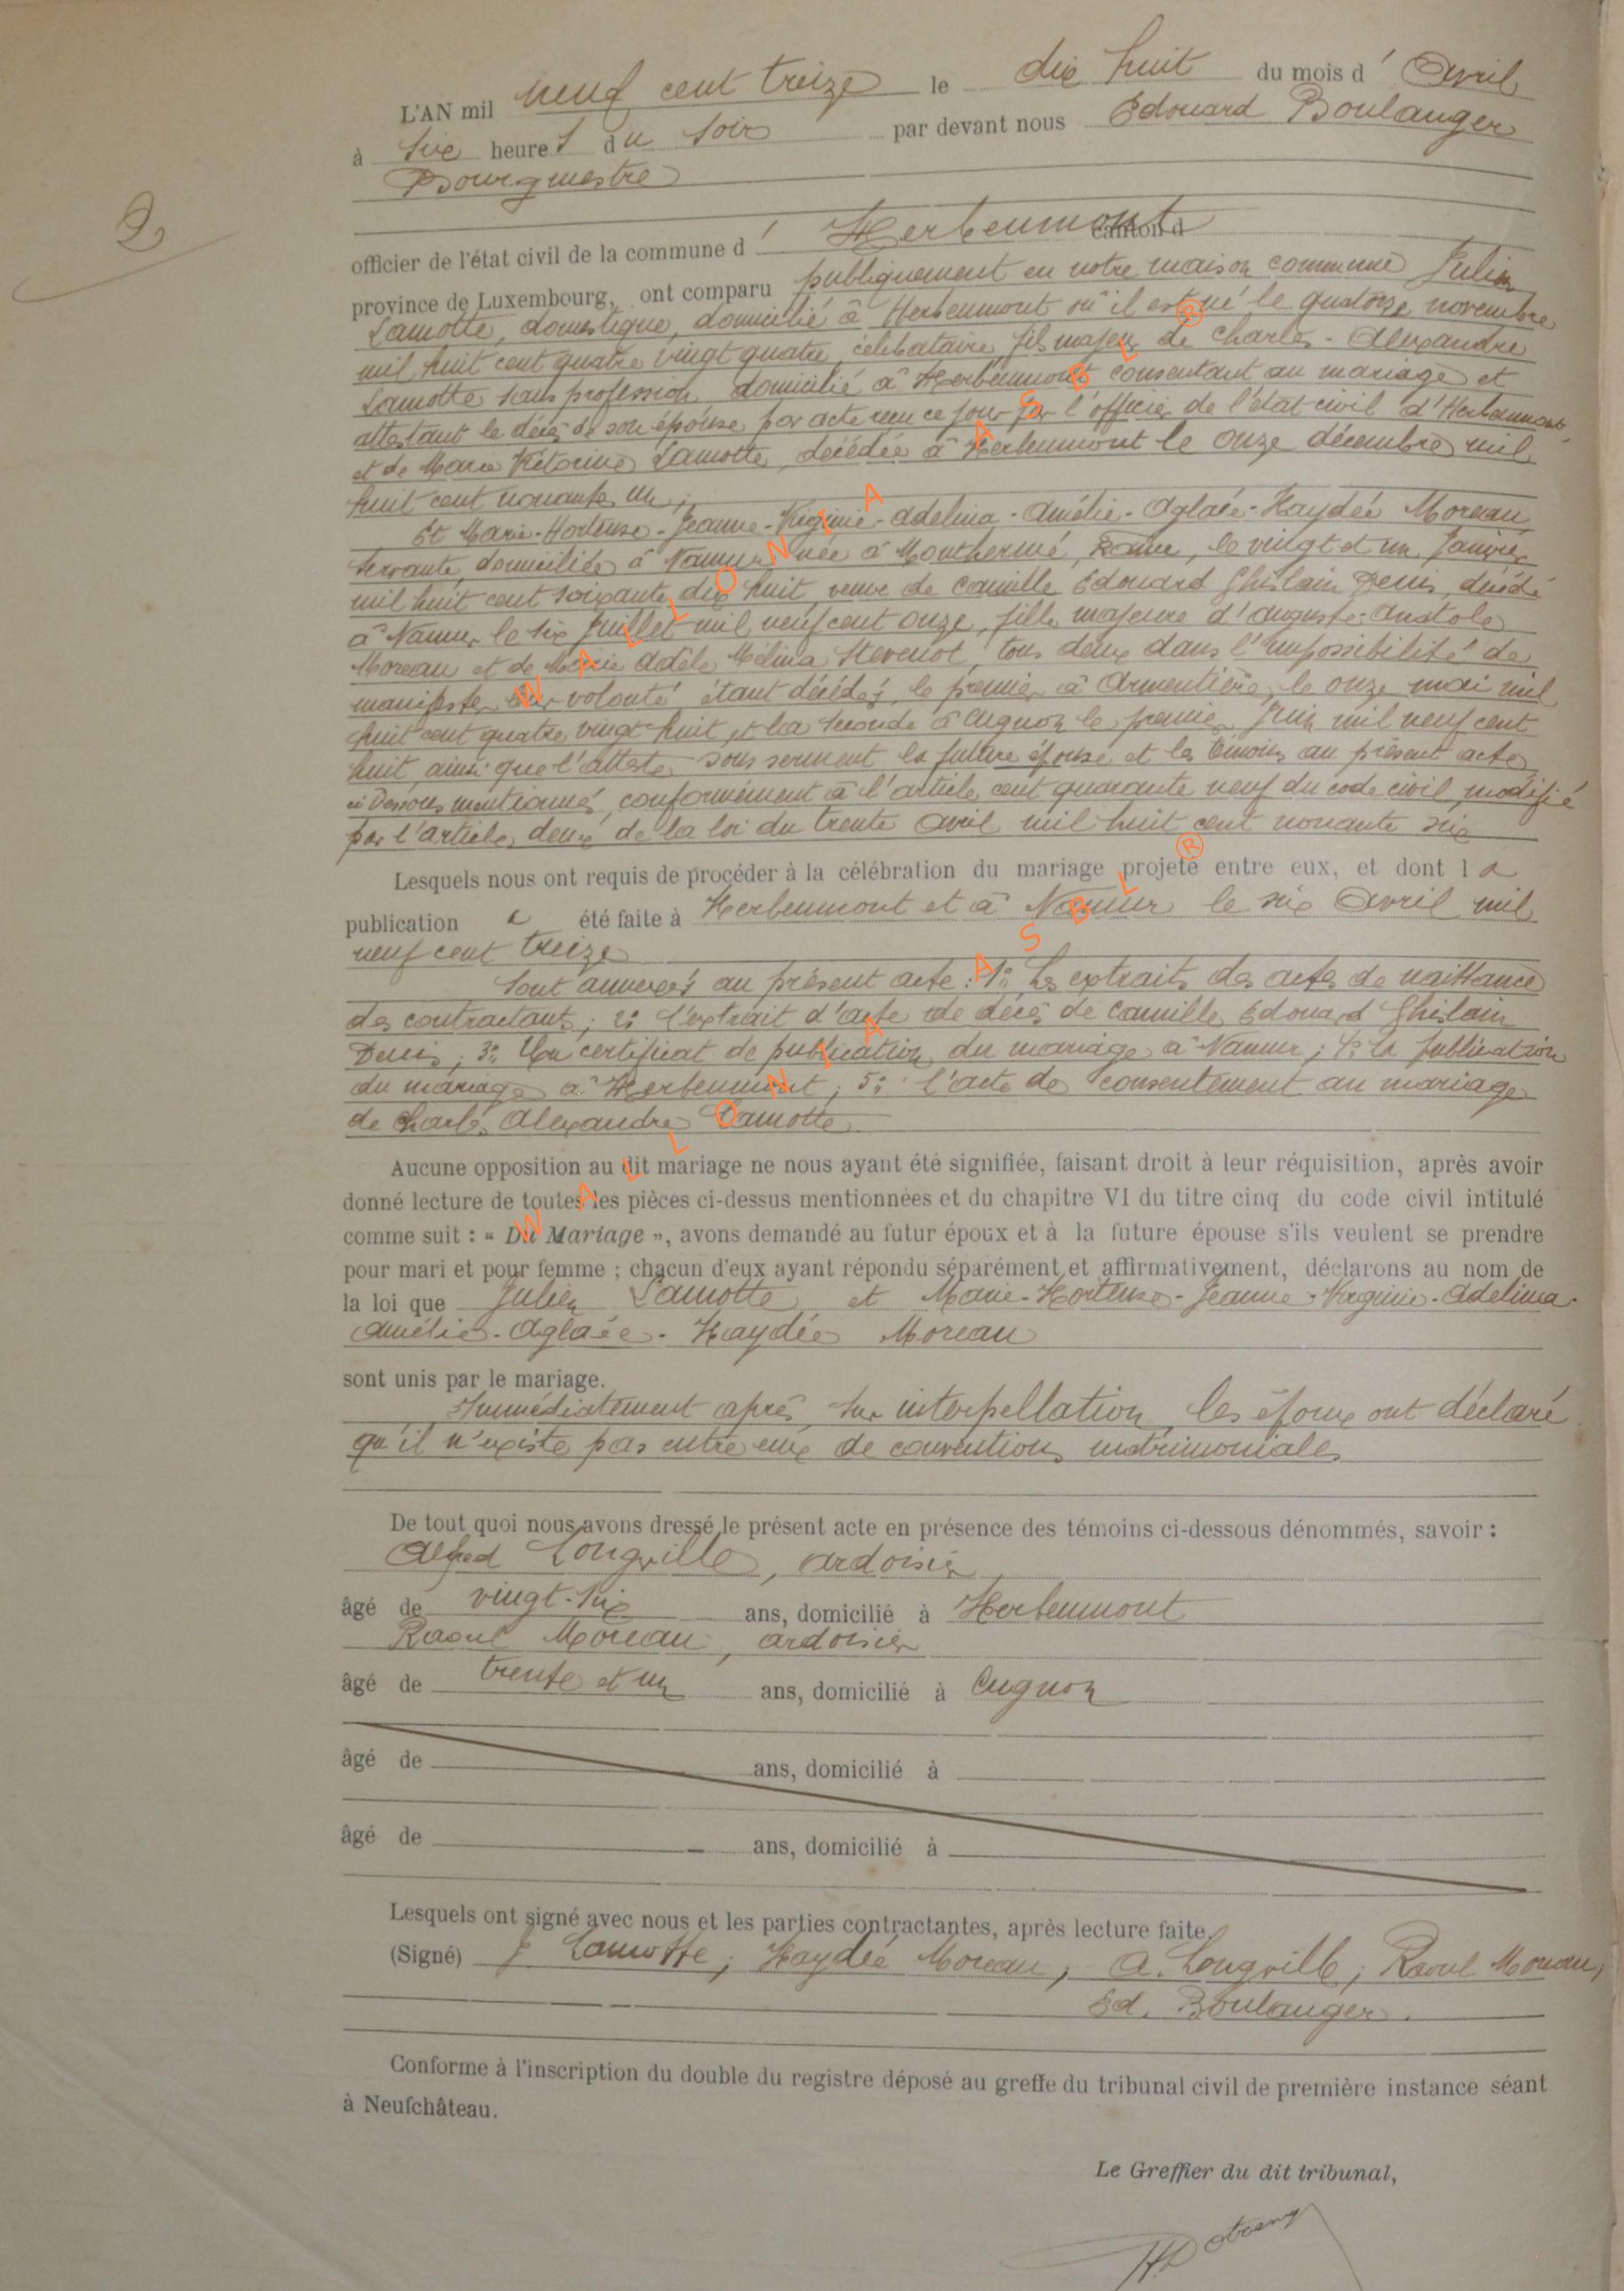 2
L'AN mil neuf cent treize le dix huit du mois d'Avril
à six heures du soir par devant nous Edouard Boulanger
Bourgmestre
officier de l'état civil de la commune d'Herbeumont canton d
province de Luxembourg, ont comparu publiquement en notre maison commune Julien
Lamotte, domestique, domicilié à Herbeumont où il est né le quatorze novembre
mil huit cent quatre vingt quatre, célibataire, fils majeur de Charles-Alexandre
Lamotte sans profession domicilié à Herbeumont consentant au mariage et
attestant le décès de son épouse par acte reçu ce jour par l'officier de l'état civil d'Herbeumont,
et de Marie Victorine Lamotte, décédée à Herbeumont le onze décembre mil
huit cent nonante un;
Et Marie-Hortense-Jeanne-Virginie-Adelina-Amélie-Aglaée-Haydée Moreau,
servante, domiciliée à Namur née à Monthermé, France, le vingt et un Janvier
mil huit cent soixante dix huit, veuve de Camille Edouard Ghislain Denis, décédé
à Namur le six Juillet mil neuf cent onze, fille majeure d'Auguste-Anatole
Moreau et de Marie Adèle Mélina Stevenot, tous deux dans l'impossibilité de
manifester leur volonté étant décédés, le premier à Armentière, le onze mai mil
huit cent quatre vingt huit, et la seconde à Cugnon le premier Juin mil neuf cent
huit, ainsi que l'atteste sous serment la future épouse et les témoins au présent acte
ci dessous mentionnés, conformément à l'article cent quarante neuf du code civil, modifié
par l'article deux de la loi du trente Avril mil huit cent nonante six
Lesquels nous ont requis de procéder à la célébration du mariage projeté entre eux, et dont la
publication a été faite à Herbeumont et à Namur le six Avril mil
neuf cent treize
Sont annexés au présent acte: 1° Les extraits des actes de naissance
des contractants; 2° l'extrait d'acte de décès de Camille Edouard Ghislain
Denis; 3° Un certificat de publication du mariage à Namur; 4° la publication
du mariage à Herbeumont; 5° l'acte de consentement au mariage
de Charles Alexandre Lamotte
Aucune opposition au dit mariage ne nous ayant été signifiée, faisant droit à leur réquisition, après avoir
donné lecture de toutes les pièces ci-dessus mentionnées et du chapitre VI du titre cinq du code civil intitulé
comme suit : « Du Mariage », avons demandé au futur époux et à la future épouse s'ils veulent se prendre
pour mari et pour femme ; chacun d'eux ayant répondu séparément et affirmativement, déclarons au nom de
la loi que Julien Lamotte et Marie-Hortense-Jeanne-Virginie-Adelina-
Amélie-Aglaée-Haydée Moreau
sont unis par le mariage.
Immédiatement après sur interpellation, les époux ont déclaré
qu'il n'existe pas entre eux de conventions matrimoniales
De tout quoi nous avons dressé le présent acte en présence des témoins ci-dessous dénommés, savoir :
Alfred Longville, ardoisier
âgé de vingt-six ans, domicilié à Herbeumont
Raoul Moreau, ardoisier
âgé de trente et un ans, domicilié à Cugnon
âgé de ans, domicilié à
âgé de ans, domicilié à
Lesquels ont signé avec nous et les parties contractantes, après lecture faite.
(Signé) J. Lamotte; Haydée Moreau, A. Longville; Raoul Moreau,
Ed. Boulanger.
Conforme à l'inscription du double du registre déposé au greffe du tribunal civil de première instance séant
à Neufchâteau.
Le Greffier du dit tribunal,
WALLONIA ASBL ®
WALLONIA ASBL ®